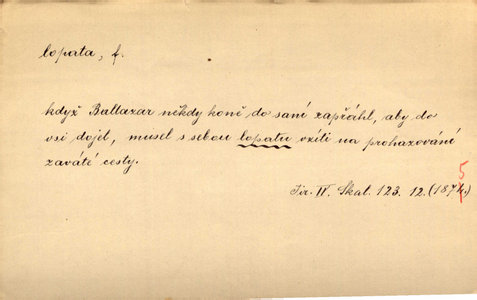 lopata, f.
když Baltazar někdy koně do saní zapřáhl, aby do
vsi dojel, musel s sebou lopatu vzíti na prohazování
zaváté cesty.
5
Jir. II. Skal. 123. 12. (1874.)